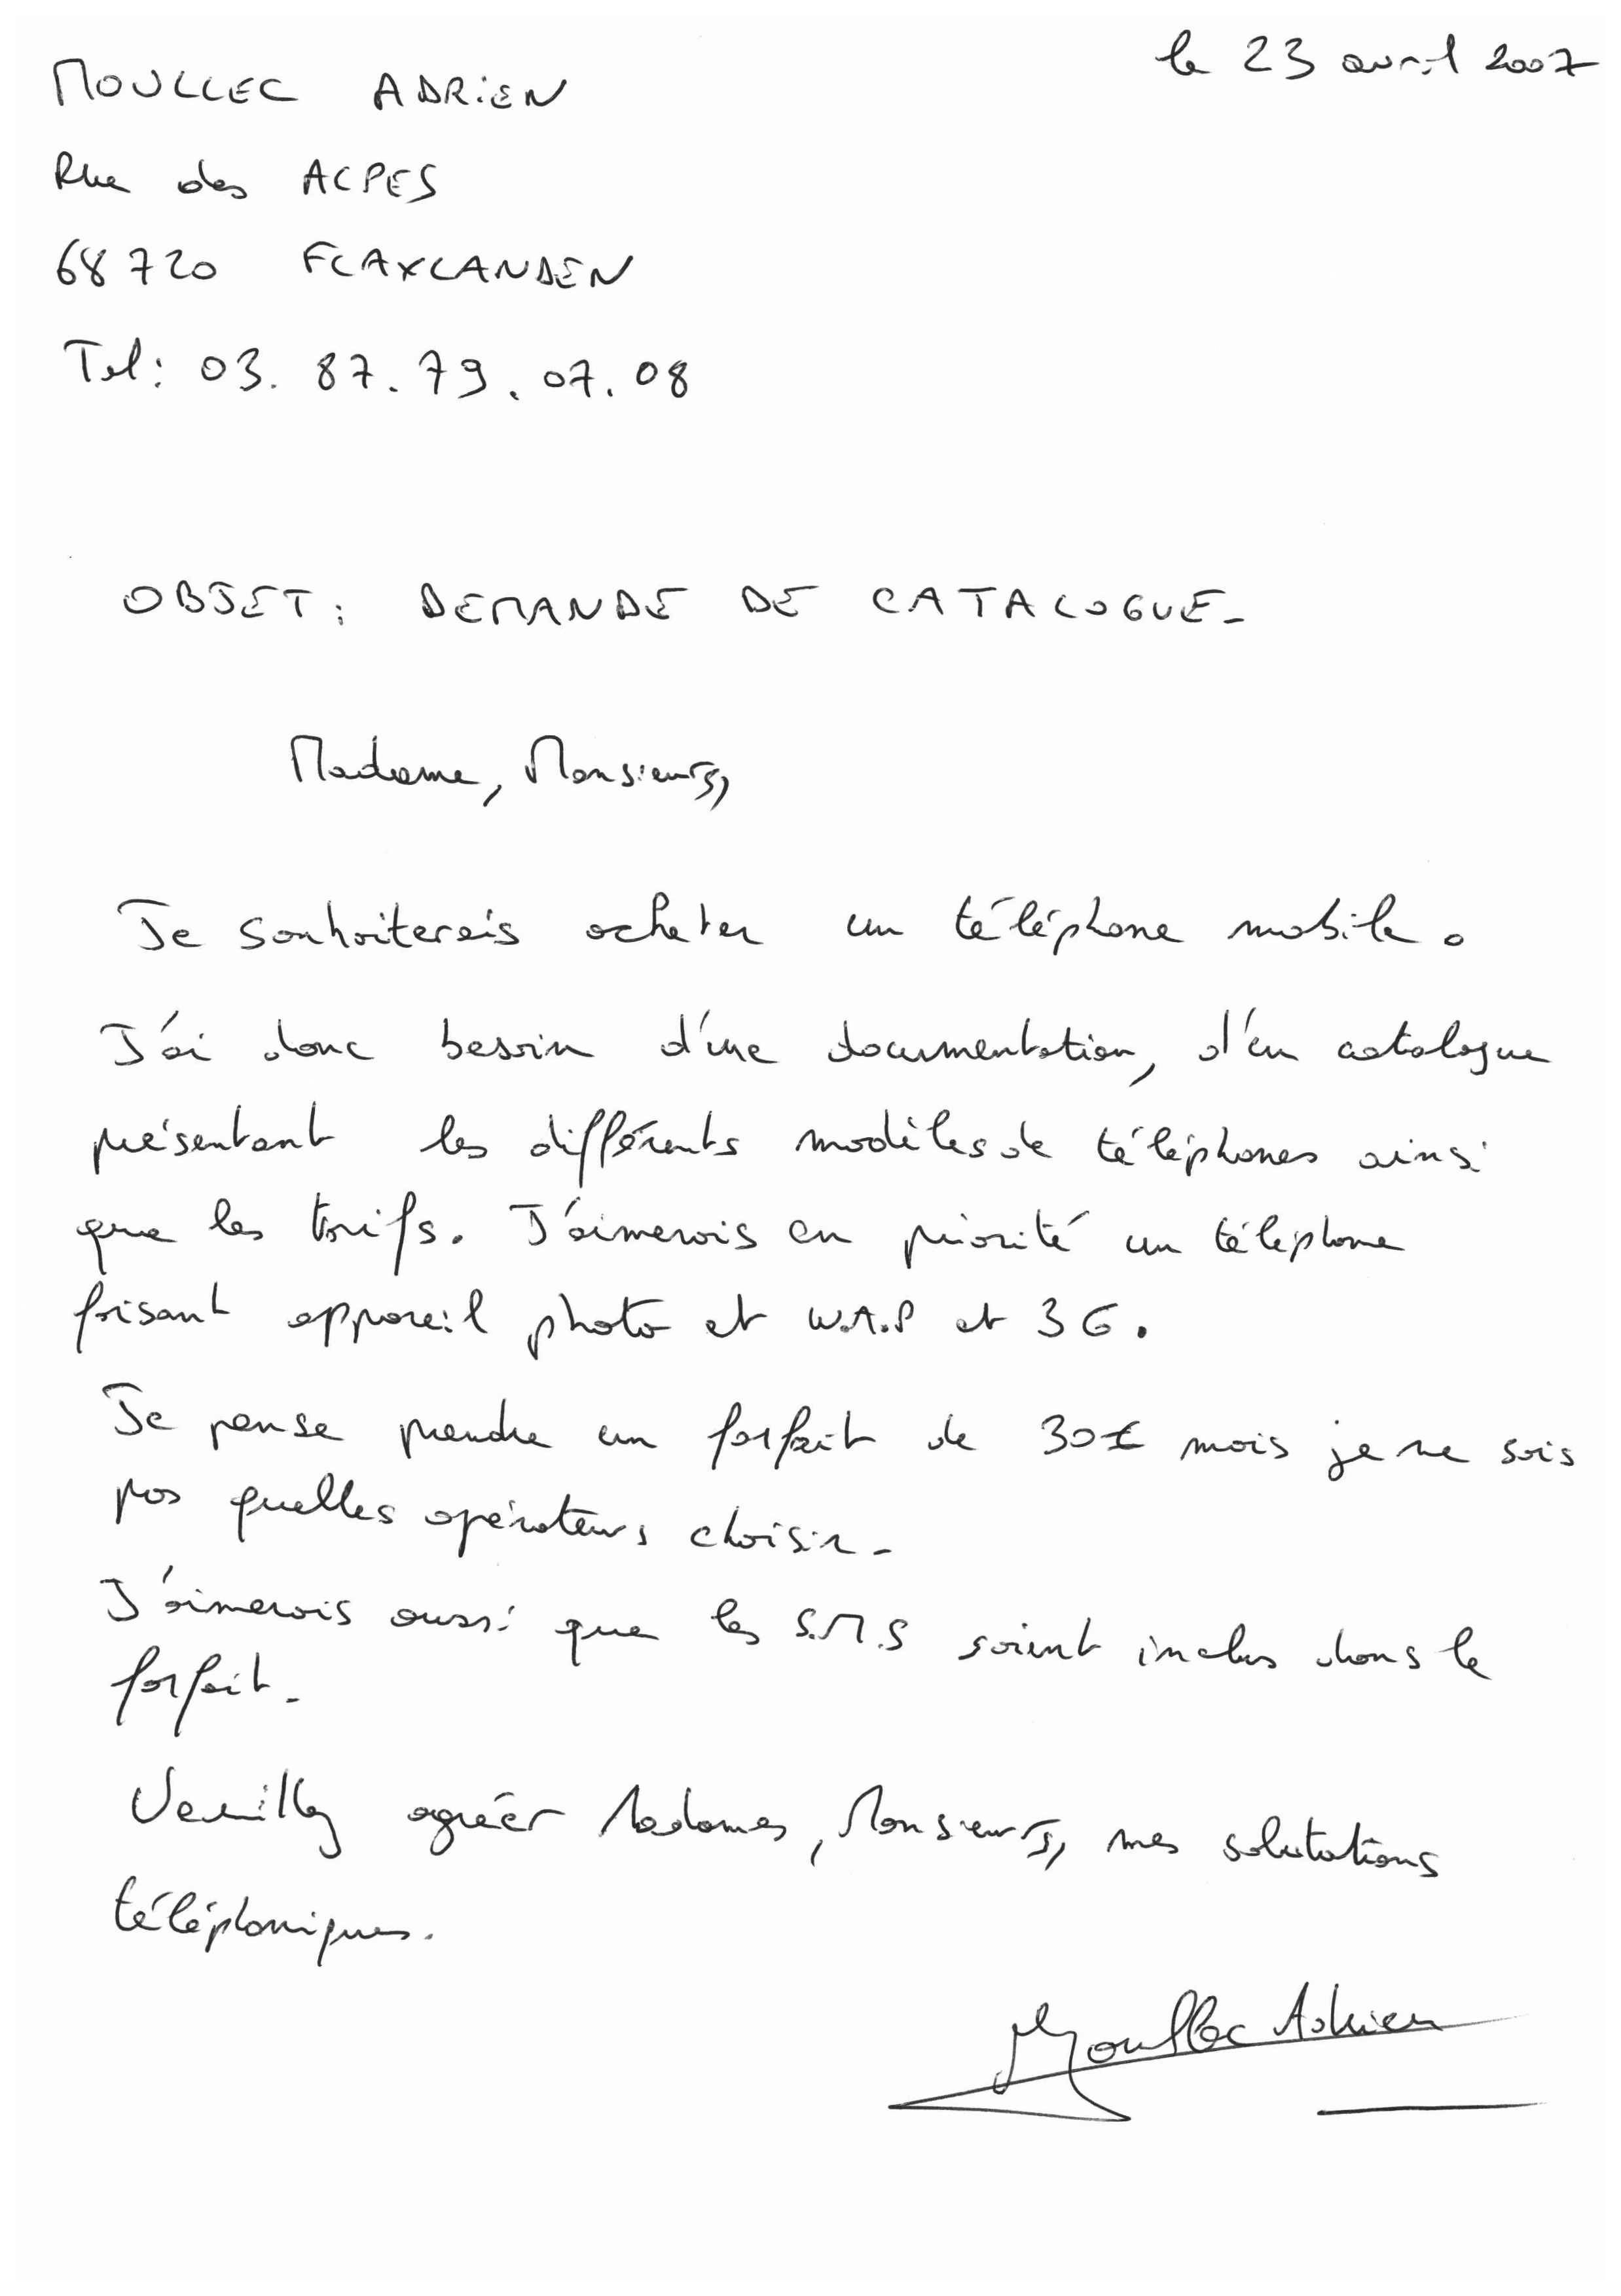 le 23 avril 2007
MOULLEC ADRIEN
Rue des ALPES
68720 FLAXLANDEN
Tel: 03. 87. 79. 07. 08
OBJET: DEMANDE DE CATALOGUE-
Madame, Monsieurs,
Je souhaiterais acheter un téléphone mobile.
J'ai donc besoin d'une documentation, d'un catalogue
présentant les différents modèles de téléphones ainsi
que les tarifs. J'aimerais en priorité un téléphone
faisant appareil photo et W.A.P et 3G.
Je pense prendre un forfait de 30€ mois je ne sais
pas quelles opérateurs choisir-
J'aimerais aussi que les S.M.S soient inclus dans le
forfait-
Veuillez agréer Madames, Monsieurs, mes salutations
téléphoniques.
Moullec Adrien